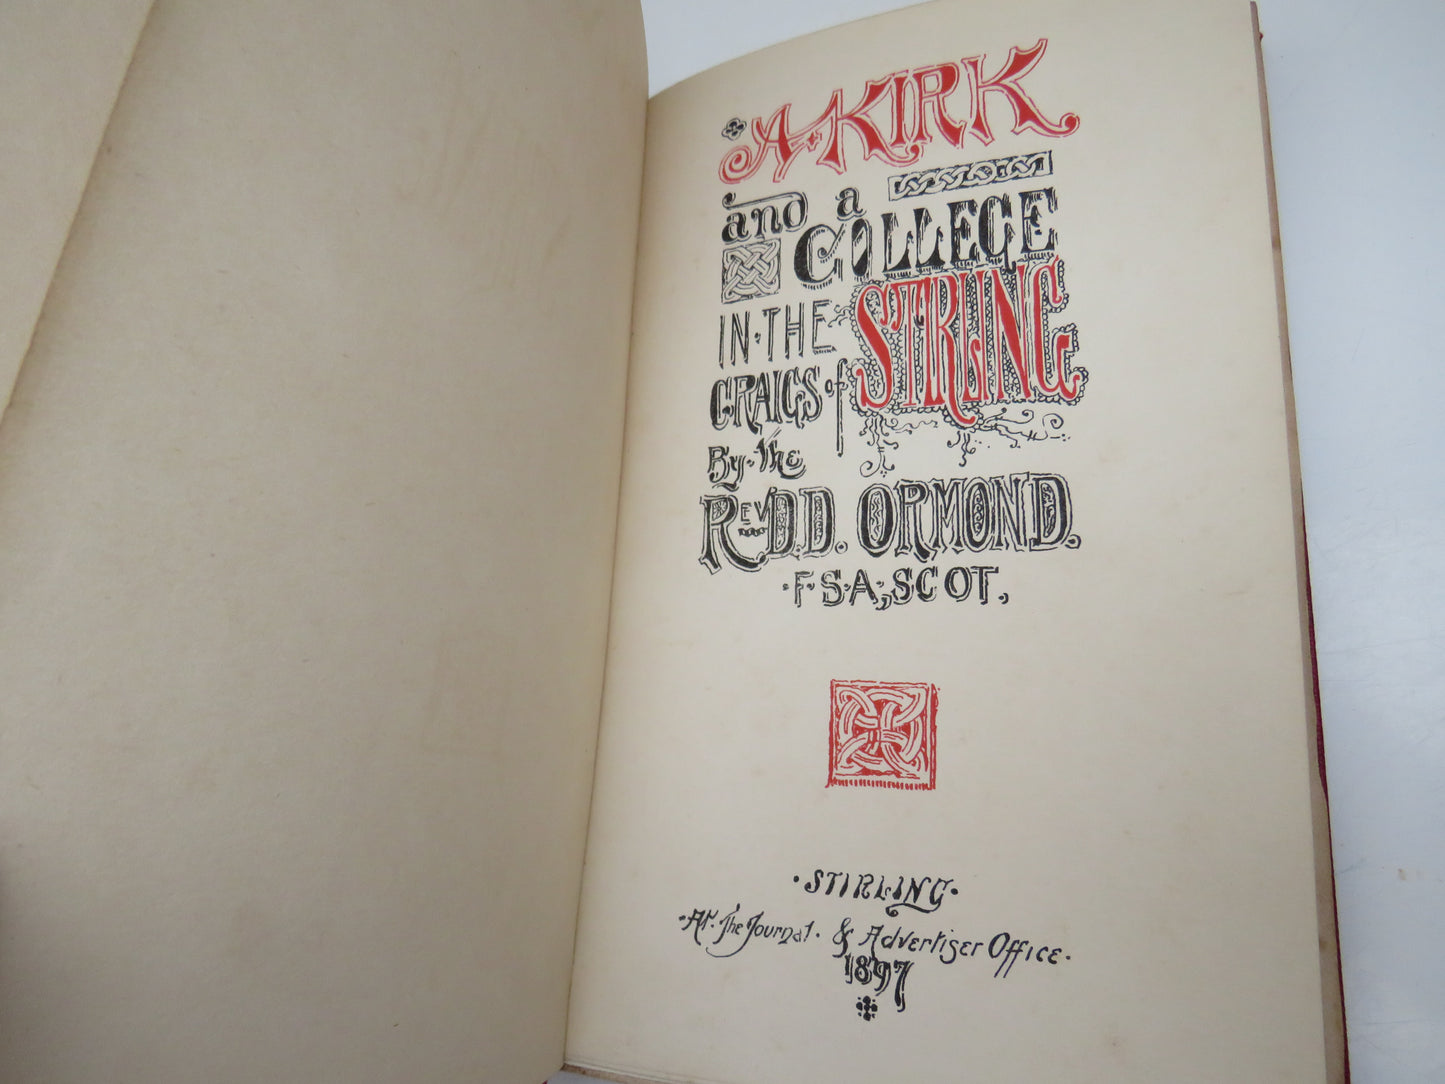 A·KIRK
and a
COLLEGE
IN·THE
CRAIGS of STIRLING
By·the
REV D.D. ORMOND.
·F·S·A·,SCOT.,
·STIRLING·
·AT·The Journal· & Advertiser Office·
1897